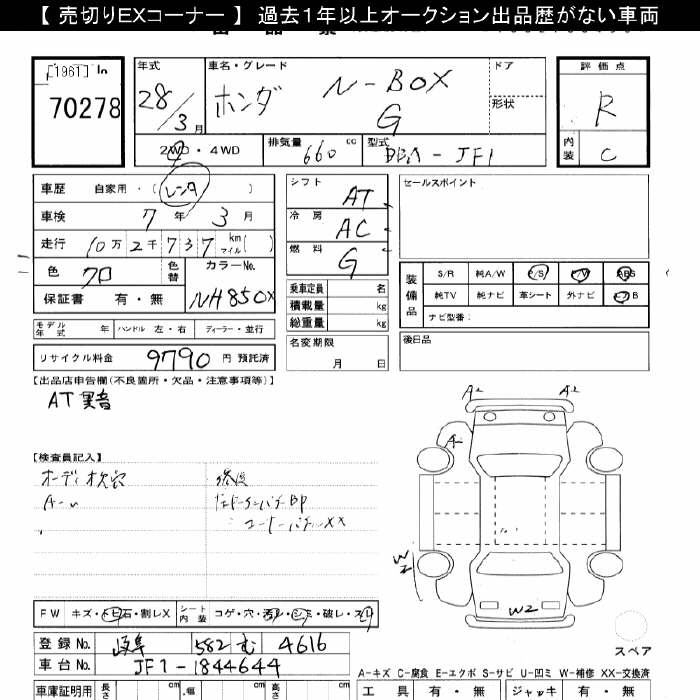 【 売切りEXコーナー 】 過去1年以上オークション出品歴がない車両
[1961]
70278
年式
28/3月
車名・グレード
ホンダ N-BOX
G
ドア
形状
評価点
R
内装
C
2WD・4WD
排気量 660 cc
型式 DBA-JF1
車歴 自家用・(レンタ)
車検 7年 3月
走行 10万2千737 km マイル( )
色 クロ
色替
カラーNo. NH850X
保証書 有・無
モデル年式 年
ハンドル 左・右
ディーラー・並行
リサイクル料金 9790 円 預託済
シフト AT
冷房 AC
燃料 G
乗車定員 名
積載量 kg
総重量 kg
名変期限
月 日
セールスポイント
装備品
S/R 純A/W P/S P/W ABS
純TV 純ナビ 革シート 外ナビ エアB
ナビ型番:
後日品
【出品店申告欄(不良箇所・欠品・注意事項等)】
AT異音
【検査員記入】
オーディオ欠穴
修復
A-
コーナーパネルXX
A2
A2
A
W2
W2
FW キズ・トビ石・割レX
シート内装 コゲ・穴・汚レ・シミ・破レ・スレ
登録No. 岐阜 582 む 4616
車台No. JF1-1844644
スペア
A-キズ C-腐食 E-エクボ S-サビ U-凹ミ W-補修 XX-交換済
車庫証明用 長さ cm 幅 cm 高さ cm
工具 有・無 ジャッキ 有・無